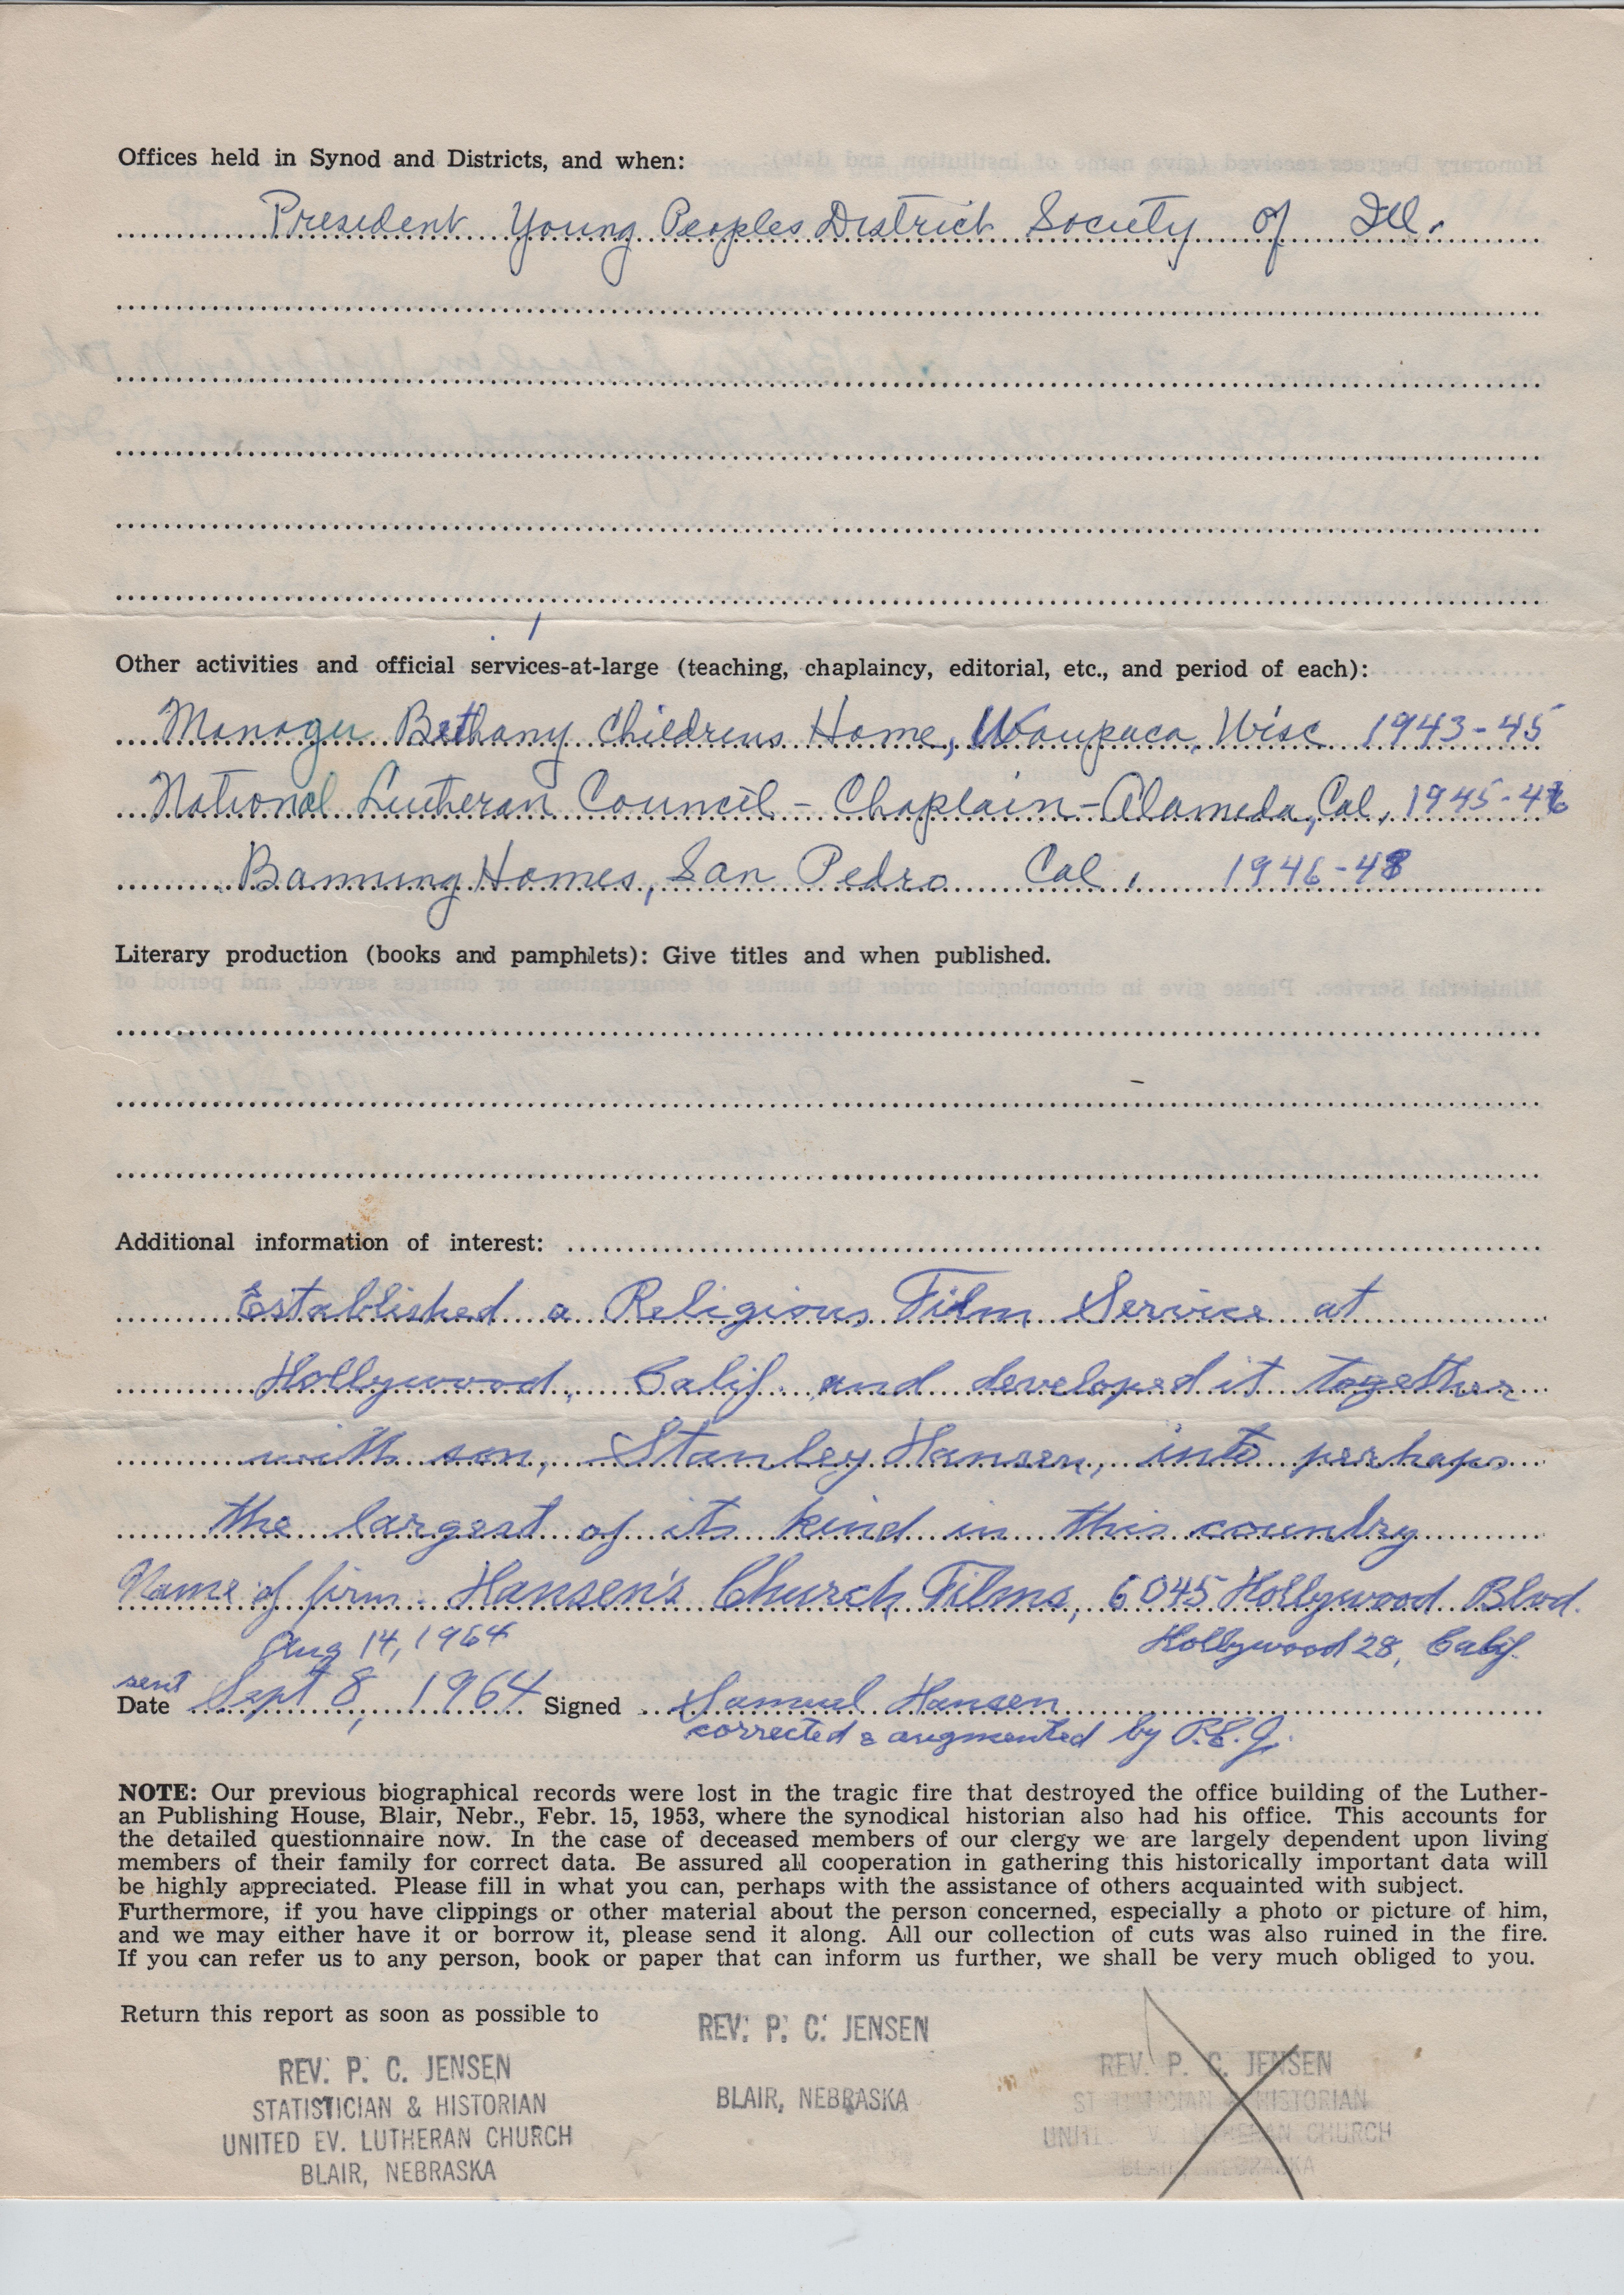 Offices held in Synod and Districts, and when:
President Young Peoples District Society of Ill.
Other activities and official services-at-large (teaching, chaplaincy, editorial, etc., and period of each):
Manager Bethany Childrens Home, Waupaca, Wisc 1943-45
National Lutheran Council - Chaplain - Alameda, Cal, 1945-46
Banning Homes, San Pedro Cal, 1946-48
Literary production (books and pamphlets): Give titles and when published.
Additional information of interest:
Established a Religious Film Service at
Hollywood, Calif. and developed it together
with son, Stanley Hansen, into perhaps
the largest of its kind in this country
Name of firm: Hansen's Church Films, 6045 Hollywood Blvd.
Aug 14, 1964 Hollywood 28, Calif.
sent
Date Sept 8, 1964 Signed Samuel Hansen
corrected & augmented by P.C.J.
NOTE: Our previous biographical records were lost in the tragic fire that destroyed the office building of the Luther-
an Publishing House, Blair, Nebr., Febr. 15, 1953, where the synodical historian also had his office. This accounts for
the detailed questionnaire now. In the case of deceased members of our clergy we are largely dependent upon living
members of their family for correct data. Be assured all cooperation in gathering this historically important data will
be highly appreciated. Please fill in what you can, perhaps with the assistance of others acquainted with subject.
Furthermore, if you have clippings or other material about the person concerned, especially a photo or picture of him,
and we may either have it or borrow it, please send it along. All our collection of cuts was also ruined in the fire.
If you can refer us to any person, book or paper that can inform us further, we shall be very much obliged to you.
Return this report as soon as possible to
REV. P. C. JENSEN
STATISTICIAN & HISTORIAN
UNITED EV. LUTHERAN CHURCH
BLAIR, NEBRASKA
REV. P. C. JENSEN
BLAIR, NEBRASKA
REV. P. C. JENSEN
STATISTICIAN & HISTORIAN
UNITED EV. LUTHERAN CHURCH
BLAIR, NEBRASKA